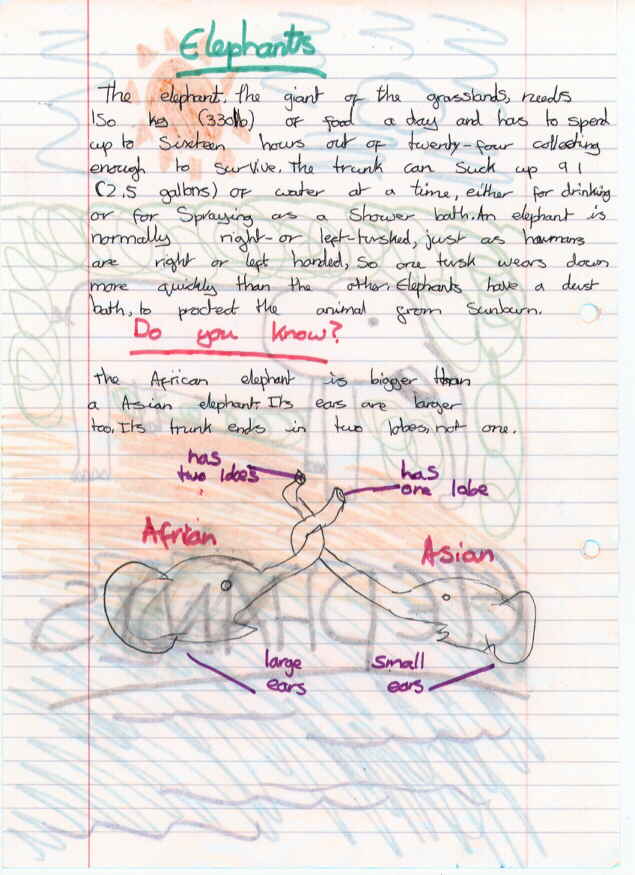 Elephants
The elephant, the giant of the grasslands, needs
150 kg (330lb) of food a day and has to spend
up to Sixteen hours out of twenty-four collecting
enough to survive. The trunk can suck up 9 l
(2.5 gallons) of water at a time, either for drinking
or for Spraying as a Shower bath. An elephant is
normally right-or left-tusked, just as humans
are right or left handed, So one tusk wears down
more quickly than the other. Elephants have a dust
bath, to protect the animal from Sunburn.
Do you know?
The African elephant is bigger than
a Asian elephant. Its ears are larger
too. Its trunk ends in two lobes, not one.
has two lobes
has one lobe
African
Asian
large ears
Small ears
ELEPHANTS